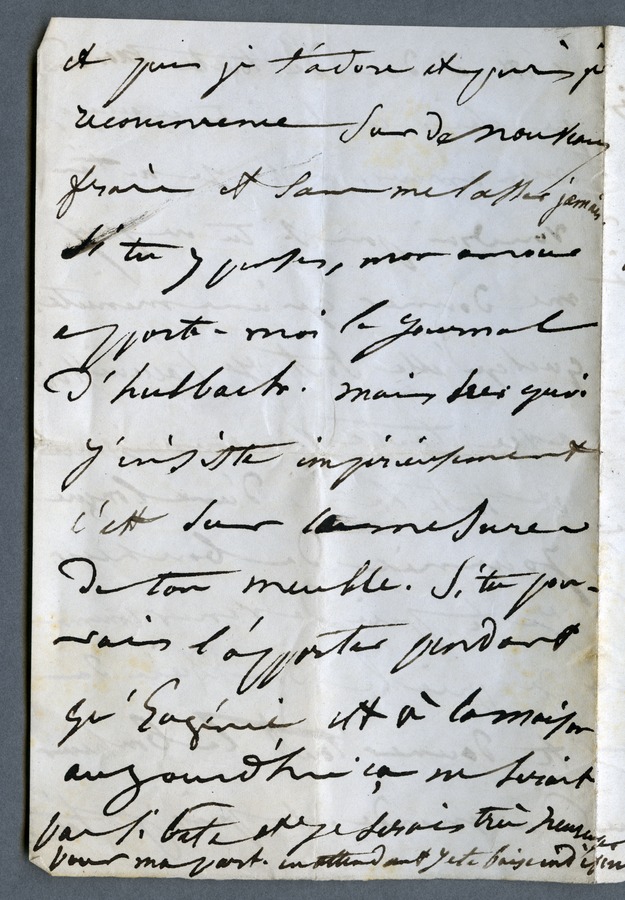 et puis je t'adore et puis je
recommence sur de nouveaux
frais et sans me lasser jamais.
Si tu y penses, mon amour
apporte-moi le journal
d'hulbach. mais sur quoi
j'insiste impérieusement
c'est sur la mesure
de ton meuble. Si tu pou-
vais l'apporter pendant
qu'Eugénie est à la maison
aujourd'hui ça ne serait
pas si bête et je serais très heureuse
pour ma part. en attendant je te baise